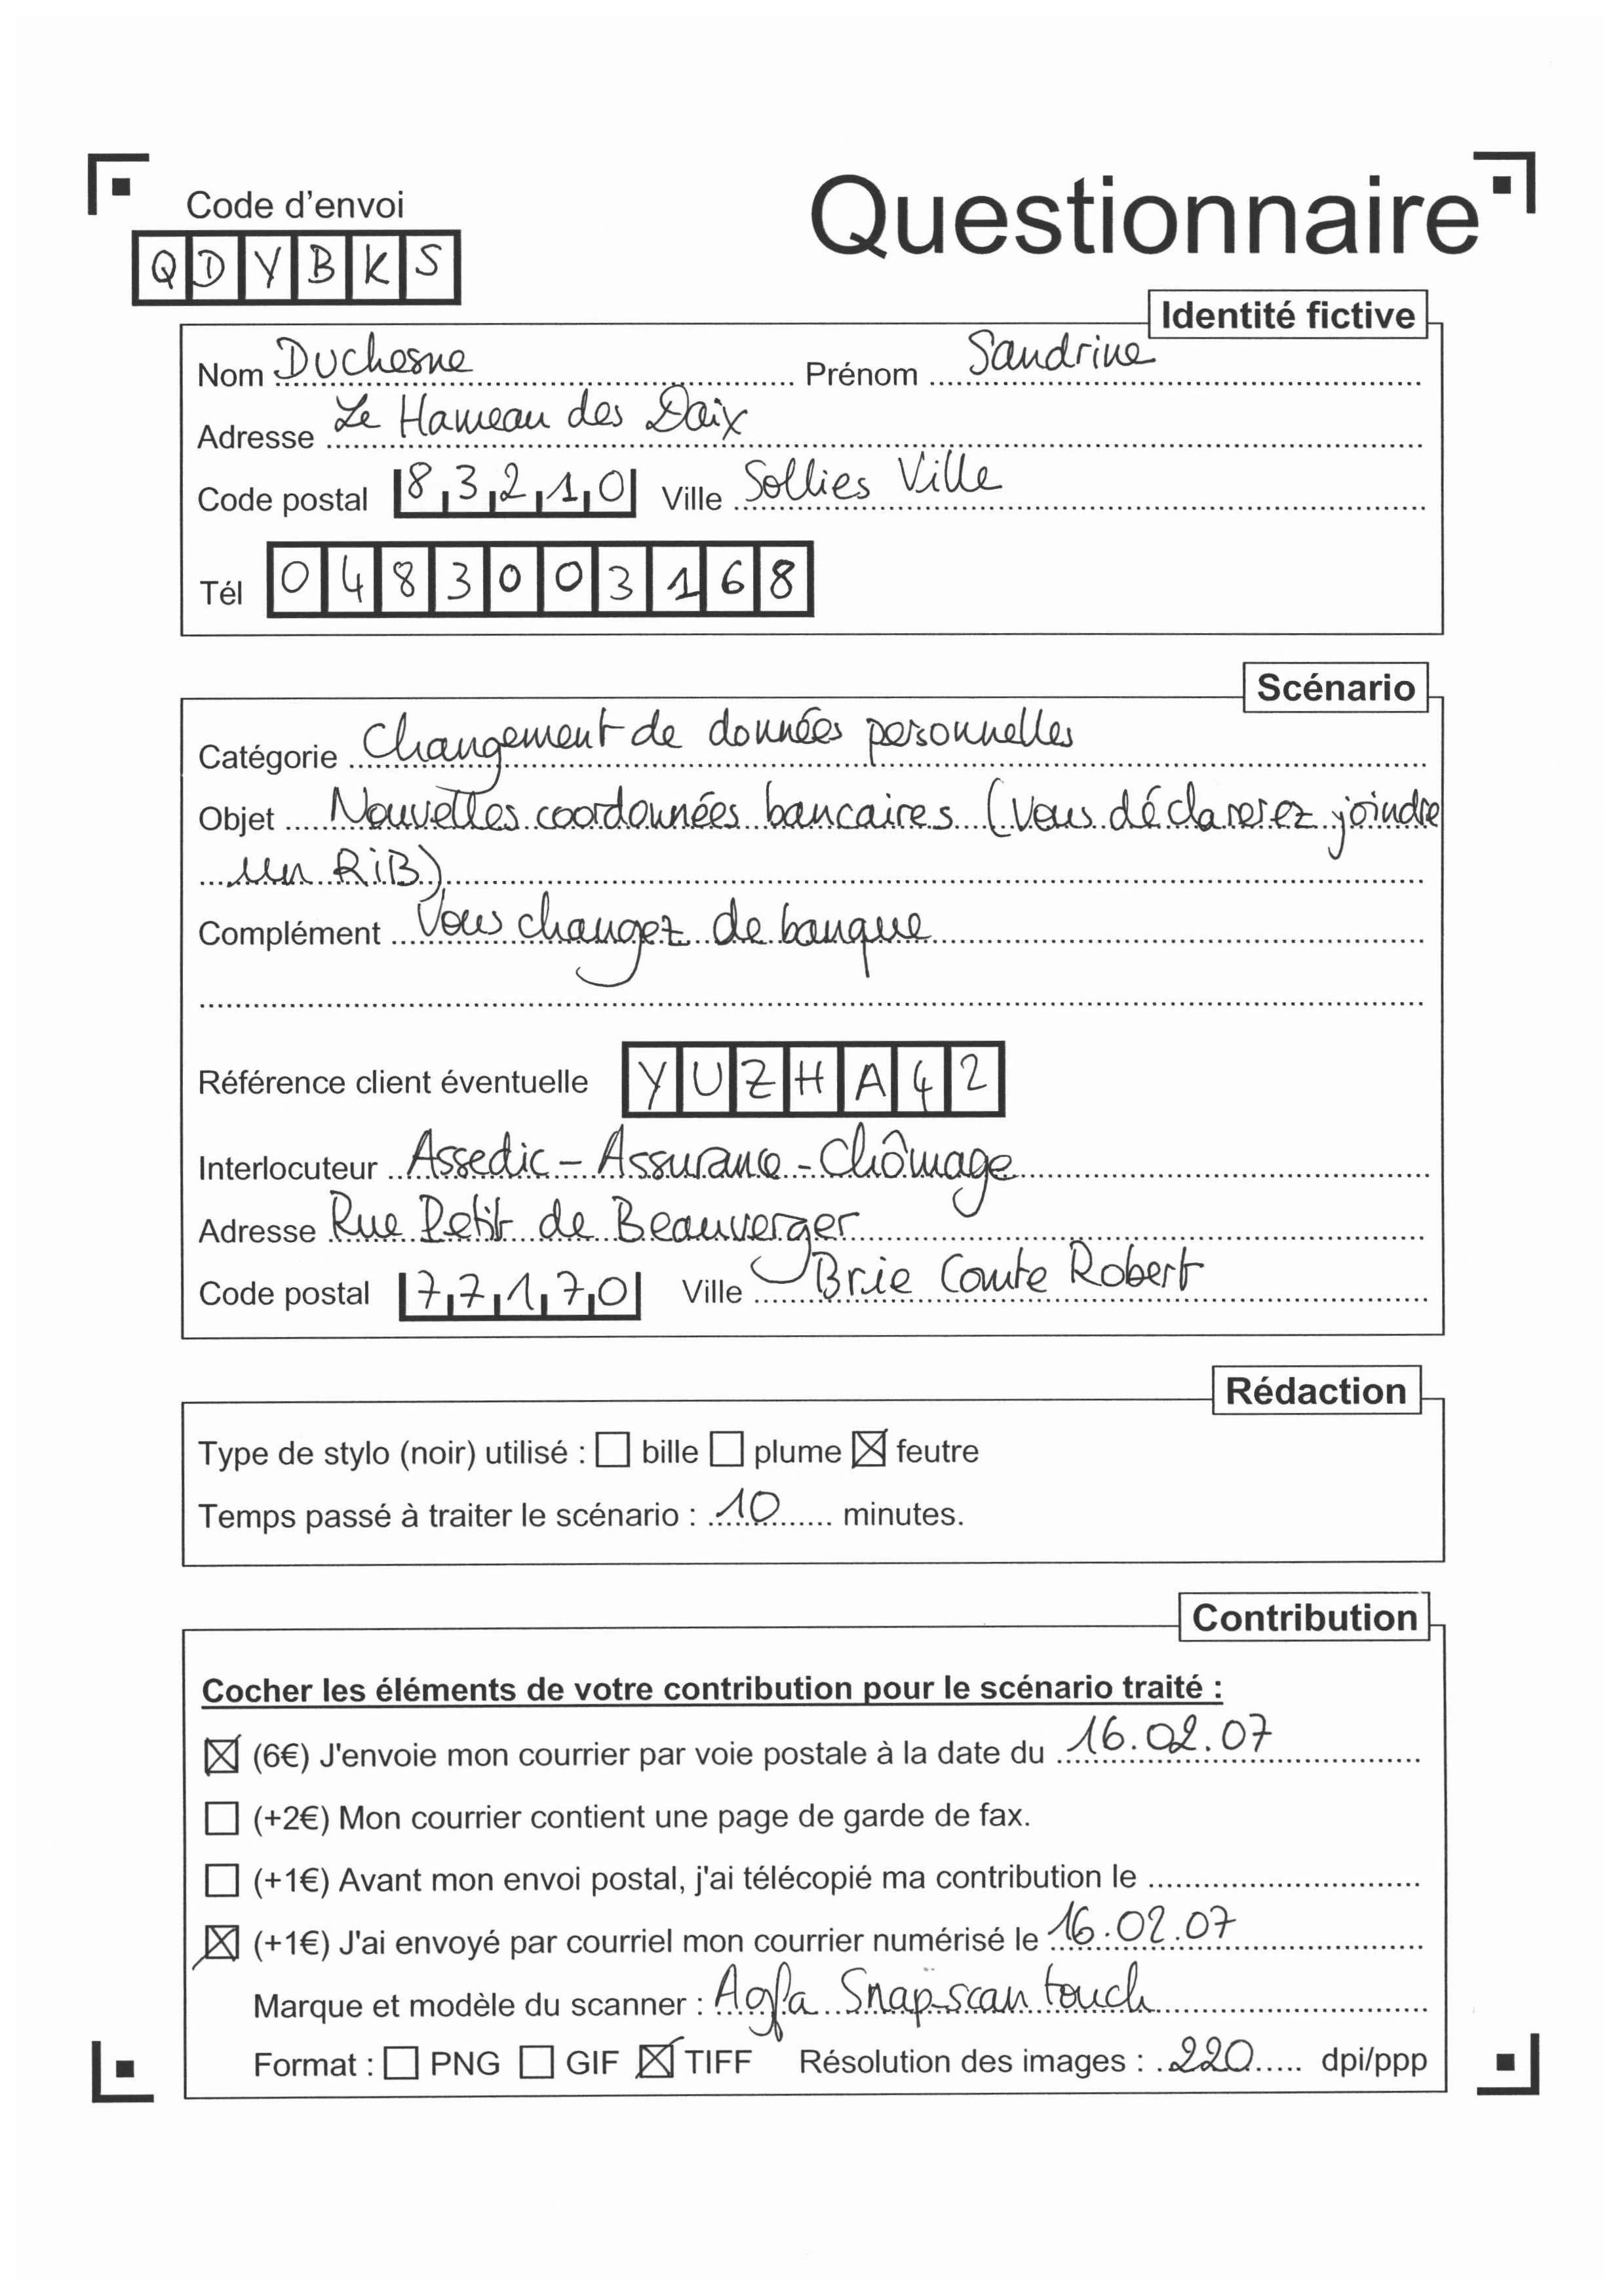 Questionnaire
Code d'envoi
QDYBKS
Identité fictive
Nom Duchesne Prénom Sandrine
Adresse Le Hameau des Daix
Code postal 83210 Ville Sollies Ville
Tél 0483003168
Scénario
Catégorie Changement de données personnelles
Objet Nouvelles coordonnées bancaires (Vous déclarerez joindre
un RiB)
Complément Vous changez de banque
Référence client éventuelle YUZHA42
Interlocuteur Assedic - Assurance - Chômage
Adresse Rue Petit de Beauverger
Code postal 77170 Ville Brie Comte Robert
Rédaction
Type de stylo (noir) utilisé : ☐ bille ☐ plume ☒ feutre
Temps passé à traiter le scénario : 10 minutes.
Contribution
Cocher les éléments de votre contribution pour le scénario traité :
☒ (6€) J'envoie mon courrier par voie postale à la date du 16.02.07
☐ (+2€) Mon courrier contient une page de garde de fax.
☐ (+1€) Avant mon envoi postal, j'ai télécopié ma contribution le
☒ (+1€) J'ai envoyé par courriel mon courrier numérisé le 16.02.07
Marque et modèle du scanner : Agfa Snapscan touch
Format : ☐ PNG ☐ GIF ☒ TIFF Résolution des images : 220 dpi/ppp